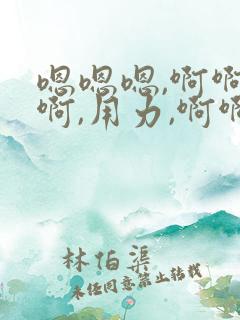 嗯嗯嗯,啊啊
啊,用力,啊啊
林伯渠
未经同意禁止转载